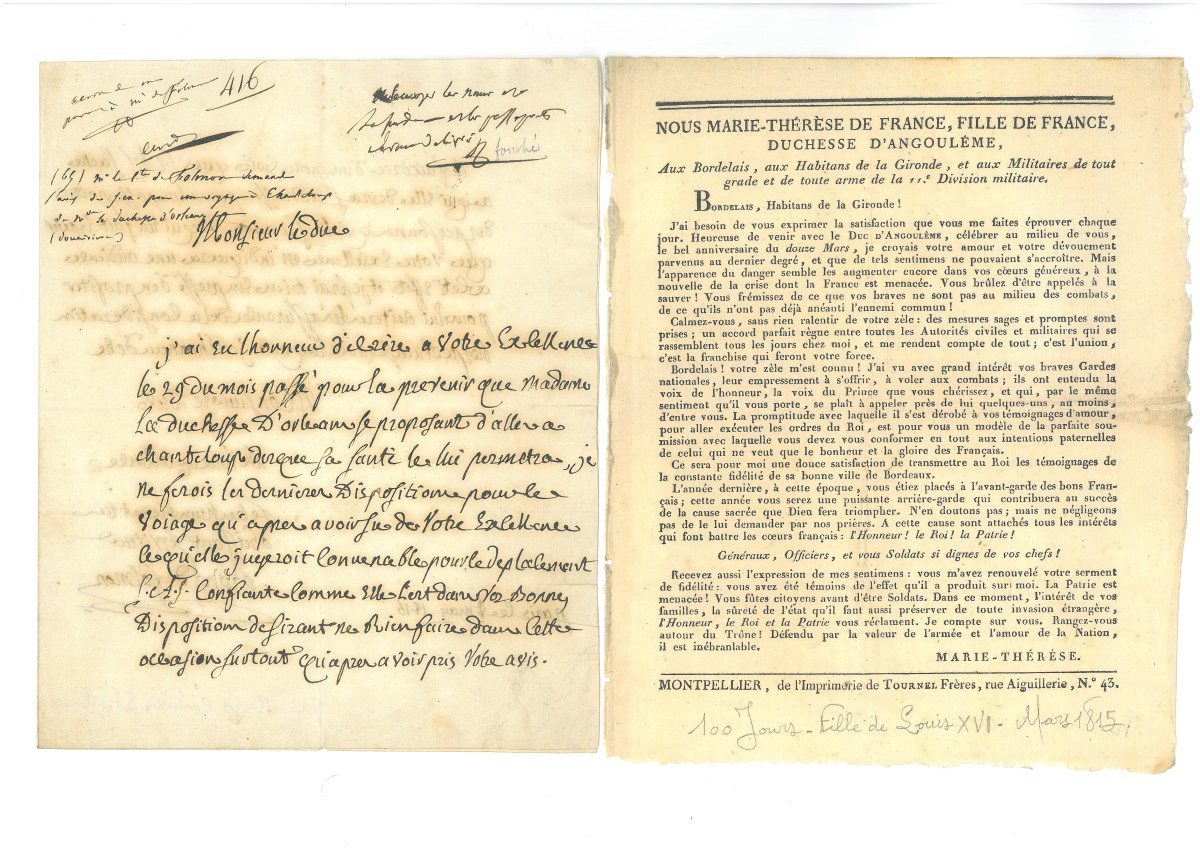 416
fouché
Monsieur le duc
j'ai eu l'honneur d'ecrire a Votre Excellence
le 29 du mois passé pour la prevenir que madame
La duchesse D'orleans se proposant d'aller a
chanteloup des que sa santé le lui permetra, je
ne ferois les dernieres Dispositions pour le
Voiage qu'apres avoir su de Votre Excellence
ce qu'elle jugeroit Convenable pour le deplacement
S. A. S. Confiante Comme Elle l'est dans Vos Bonnes
Dispositions desirant ne Rien faire dans Cette
occasion surtout qu'apres avoir pris Votre avis.
NOUS MARIE-THÉRÈSE DE FRANCE, FILLE DE FRANCE,
DUCHESSE D'ANGOULÊME,
Aux Bordelais, aux Habitans de la Gironde, et aux Militaires de tout
grade et de toute arme de la 11.e Division militaire.
BORDELAIS, Habitans de la Gironde !
J'ai besoin de vous exprimer la satisfaction que vous me faites éprouver chaque
jour. Heureuse de venir avec le DUC D'ANGOULÊME, célébrer au milieu de vous,
le bel anniversaire du douze Mars, je croyais votre amour et votre dévouement
parvenus au dernier degré, et que de tels sentimens ne pouvaient s'accroître. Mais
l'apparence du danger semble les augmenter encore dans vos cœurs généreux, à la
nouvelle de la crise dont la France est menacée. Vous brûlez d'être appelés à la
sauver ! Vous frémissez de ce que vos braves ne sont pas au milieu des combats,
de ce qu'ils n'ont pas déjà anéanti l'ennemi commun !
Calmez-vous, sans rien ralentir de votre zèle : des mesures sages et promptes sont
prises ; un accord parfait règne entre toutes les Autorités civiles et militaires qui se
rassemblent tous les jours chez moi, et me rendent compte de tout ; c'est l'union,
c'est la franchise qui feront votre force.
Bordelais ! votre zèle m'est connu ! J'ai vu avec grand intérêt vos braves Gardes
nationales, leur empressement à s'offrir, à voler aux combats ; ils ont entendu la
voix de l'honneur, la voix du Prince que vous chérissez, et qui, par le même
sentiment qu'il vous porte, se plaît à appeler près de lui quelques-uns, au moins,
d'entre vous. La promptitude avec laquelle il s'est dérobé à vos témoignages d'amour,
pour aller exécuter les ordres du Roi, est pour vous un modèle de la parfaite sou-
mission avec laquelle vous devez vous conformer en tout aux intentions paternelles
de celui qui ne veut que le bonheur et la gloire des Français.
Ce sera pour moi une douce satisfaction de transmettre au Roi les témoignages de
la constante fidélité de sa bonne ville de Bordeaux.
L'année dernière, à cette époque, vous étiez placés à l'avant-garde des bons Fran-
çais ; cette année vous serez une puissante arrière-garde qui contribuera au succès
de la cause sacrée que Dieu fera triompher. N'en doutons pas ; mais ne négligeons
pas de le lui demander par nos prières. A cette cause sont attachés tous les intérêts
qui font battre les cœurs français : l'Honneur ! le Roi ! la Patrie !
Généraux, Officiers, et vous Soldats si dignes de vos chefs !
Recevez aussi l'expression de mes sentimens : vous m'avez renouvelé votre serment
de fidélité : vous avez été témoins de l'effet qu'il a produit sur moi. La Patrie est
menacée ! Vous fûtes citoyens avant d'être Soldats. Dans ce moment, l'intérêt de vos
familles, la sûreté de l'état qu'il faut aussi préserver de toute invasion étrangère,
l'Honneur, le Roi et la Patrie vous réclament. Je compte sur vous. Rangez-vous
autour du Trône ! Défendu par la valeur de l'armée et l'amour de la Nation,
il est inébranlable.
MARIE-THÉRÈSE.
MONTPELLIER, de l'Imprimerie de TOURNEL Frères, rue Aiguillerie, N.° 43.
100 Jours - Fille de Louis XVI - Mars 1815.